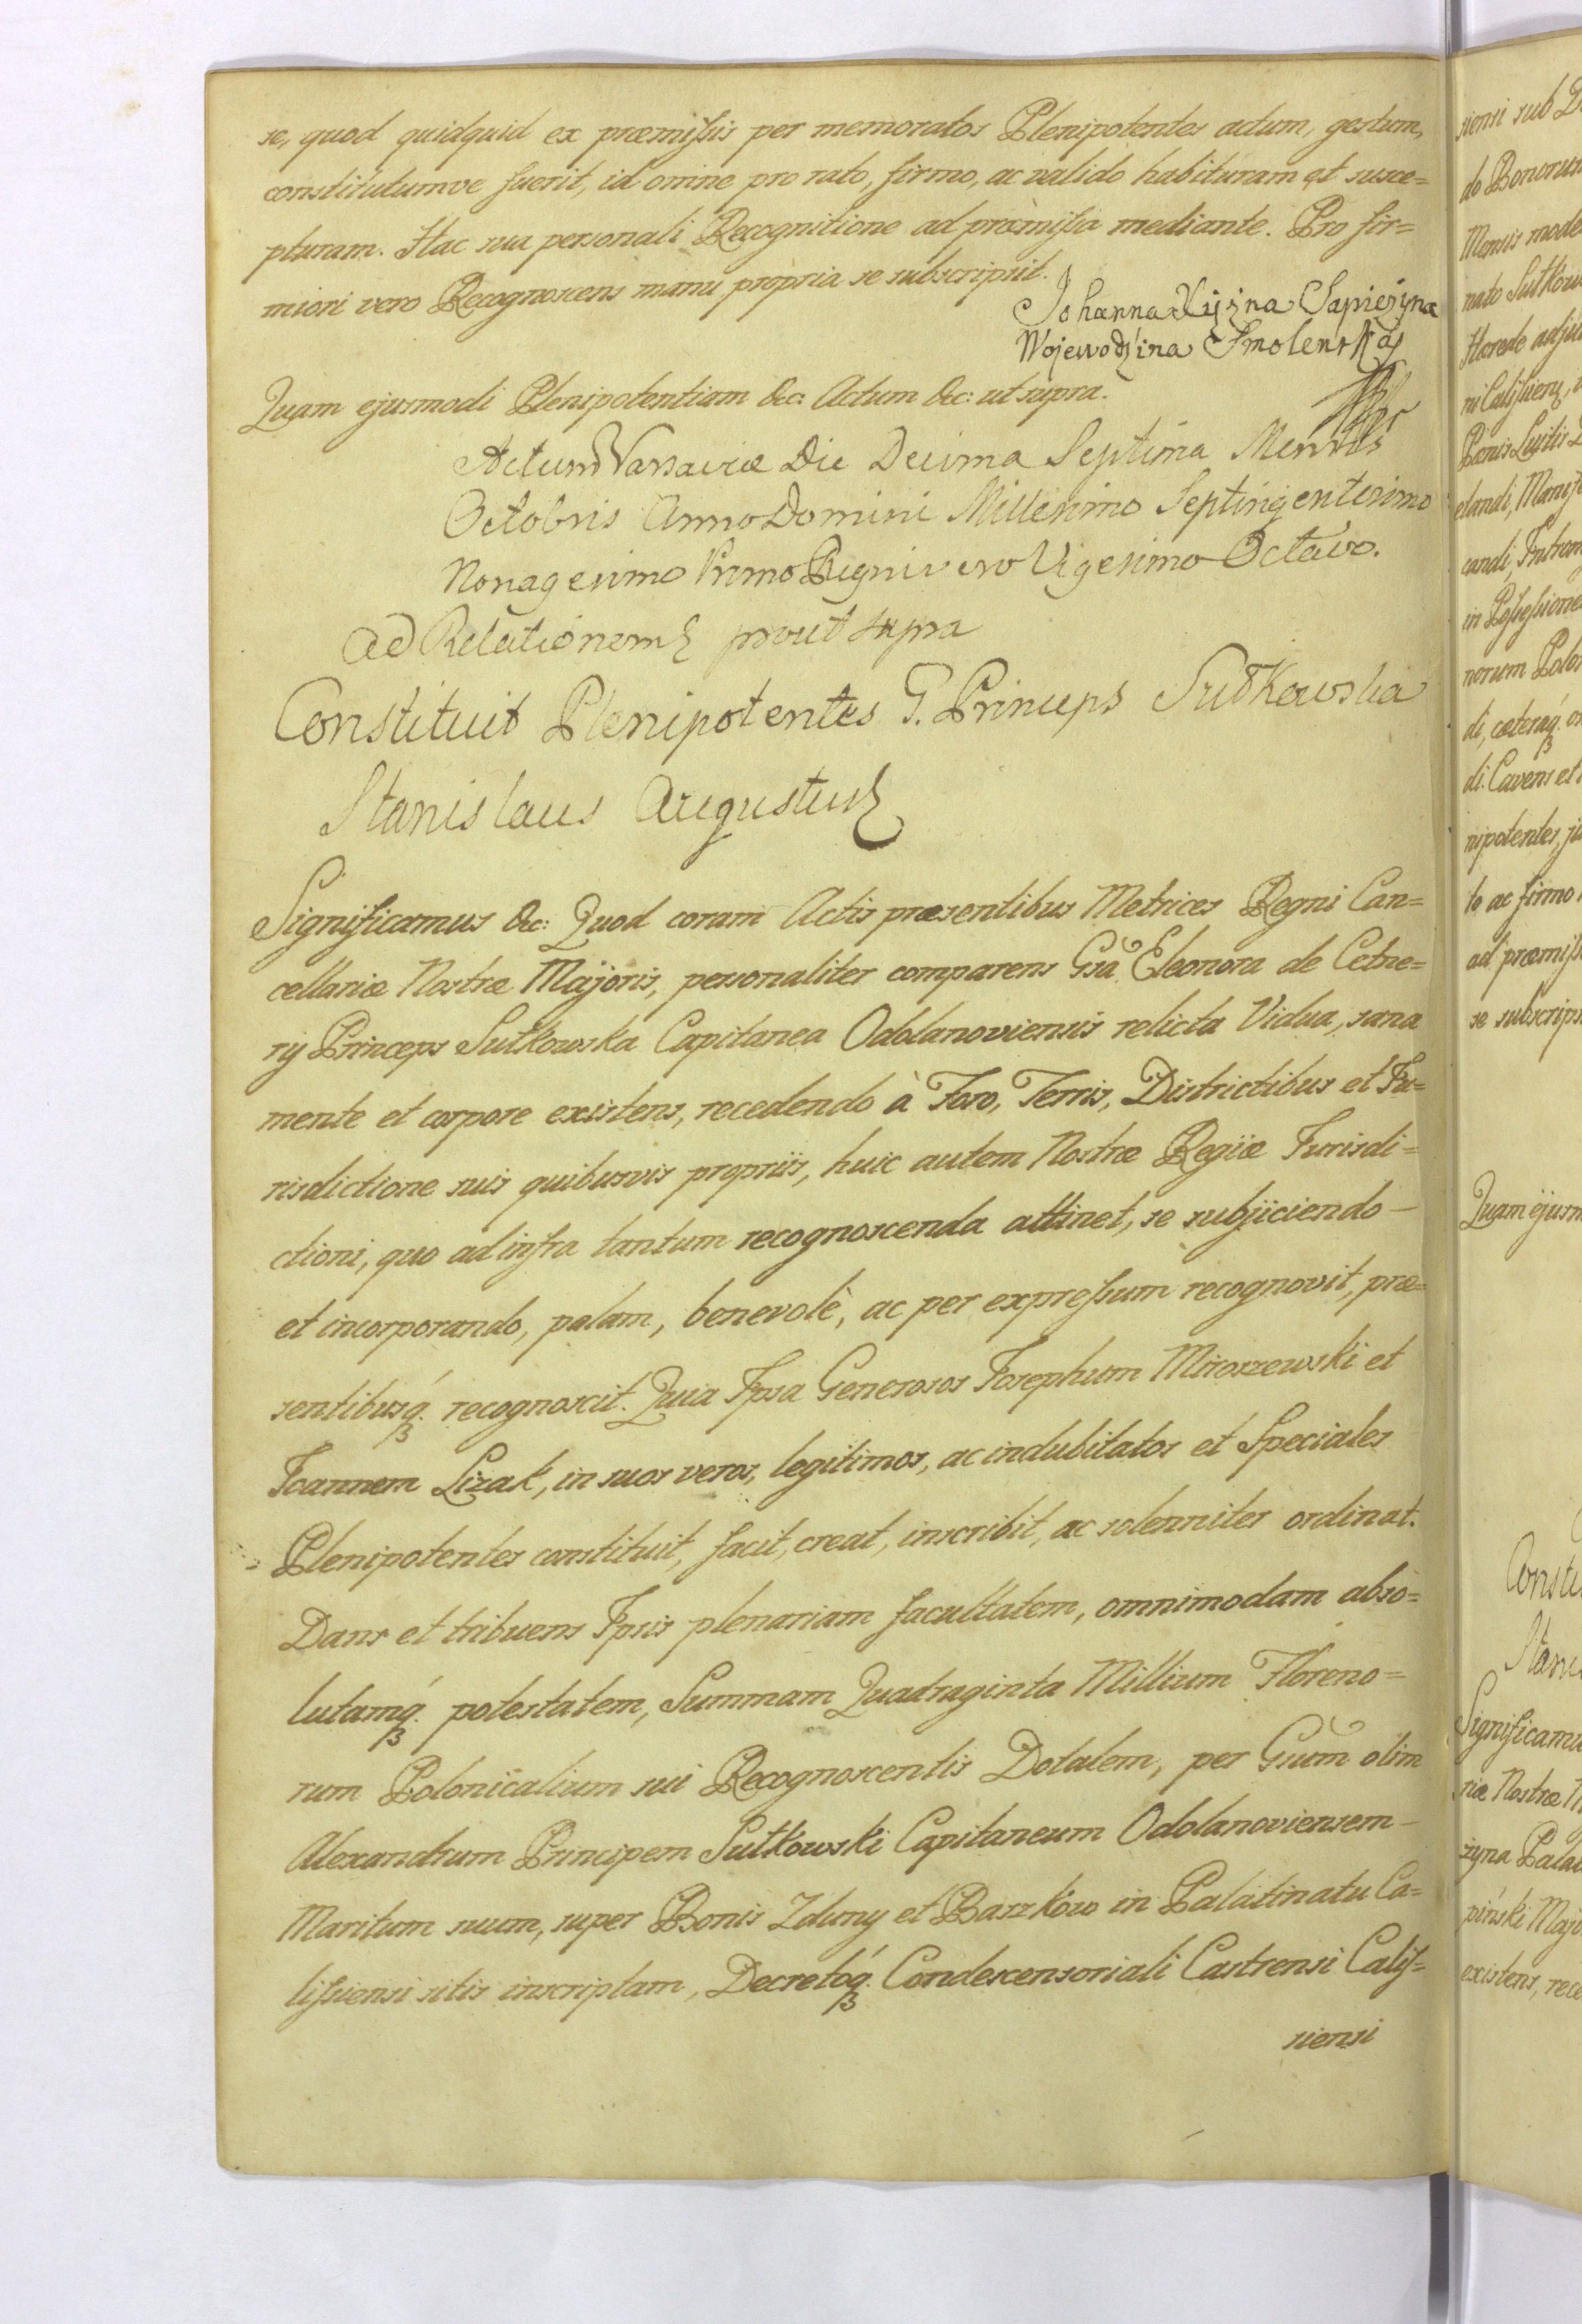 se, quod quidquid ex præmissis per memoratos Plenipotentes actum, gestum,
constitutumve fuerit, id omne pro rato, firmo, ac valido habituram et susce=
pturam. Hac sui personali Recognitione ad præmissa mediante. Pro fir=
miori vero Recognoscens manu propria se subscripsit.
Johanna Xiężna Sapieżyna
Wojewodzina Smolenska
Quam ejusmodi Plenipotentiam &c: Actum &c: ut supra.
Actum Varsaviæ Die Decima Septima Mensis
Octobris Anno Domini Millesimo Septingentesimo
Nonagesimo Primo Regni vero Vigesimo Octavo.
Ad Relationem prout supra
Constituit Plenipotentes G. Princeps Sułkowska
Stanislaus Augustus
Significamus &c: Quod coram Actis præsentibus Metrices Regni Can=
cellariæ Nostræ Majoris, personaliter comparens Gsa Eleonora de Cetne=
ry Princeps Sułkowska Capitanea Odolanoviensis relicta Vidua, sana
mente et corpore existens, recedendo à Foro, Terris, Districtibus et Ju=
risdictione suis quibusvis propriis, huic autem Nostræ Regiæ Jurisdi=
ctioni, quo ad infra tantum recognoscenda attinet, se subjiciendo –
et incorporando, palam, benevolè, ac per expressum recognovit, præ=
sentibusq. recognoscit. Quia Ipsa Generosos Josephum Miroszewski et
Joannem Lizak, in suos veros, legitimos, ac indubitatos et Speciales
Plenipotentes constituit, facit, creat, inscribit, ac solenniter ordinat.
Dans et tribuens Ipsis plenariam facultatem, omnimodam abso=
lutamq. potestatem, Summam Quadraginta Millium Floreno=
rum Polonicalium sui Recognoscentis Dotalem, per Gsum olim
Alexandrum Principem Sułkowski Capitaneum Odolanoviensem –
Maritum suum, super Bonis Zduny et Baszków in Palatinatu Ca=
lissiensi sitis inscriptam, Decretoq. Condescensoriali Castrensi Calis=
siensi
siensi sub
do Bonorum
Mensis
nato
Hærede
Panis
elandi,
candi,
in Possessione
norum
di, cæteraq.
di. Cavens et
nipotentes,
to ac firmo
ad præmissa
se subscrips
Quam ejusm
Significamus
riæ Nostræ
żyna
piński
existens, rece